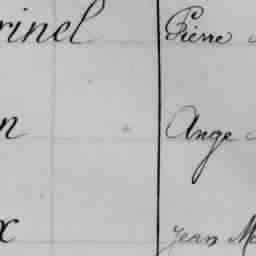 rinel Pierre
n Ange
x Jean M